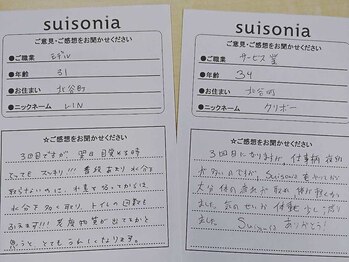 suisonia
ご意見・ご感想をお聞かせください
●ご職業 モデル
●年齢 31
●お住まい 北谷町
●ニックネーム LIN
☆ご感想をお聞かせください
3回目ですが 翌日 目覚める時
とっても スッキリ!!! 普段 あまり 水分を
取らないのに、水素を吸ってからは
水分を多く取り、トイレの回数も
ふえます!!! 老廃物質が出てるかと
思うと とてもうれしくなります。
suisonia
ご意見・ご感想をお聞かせください
●ご職業 サービス業
●年齢 34
●お住まい 北谷町
●ニックネーム クリボー
☆ご感想をお聞かせください
3回目になりますが 仕事柄 夜勤
が多いのですが、Suisoniaを
体の疲れが取れ 体が軽くなり
ました 気のせいか 体重も少し減り
ました。Suisonia ありがとう!